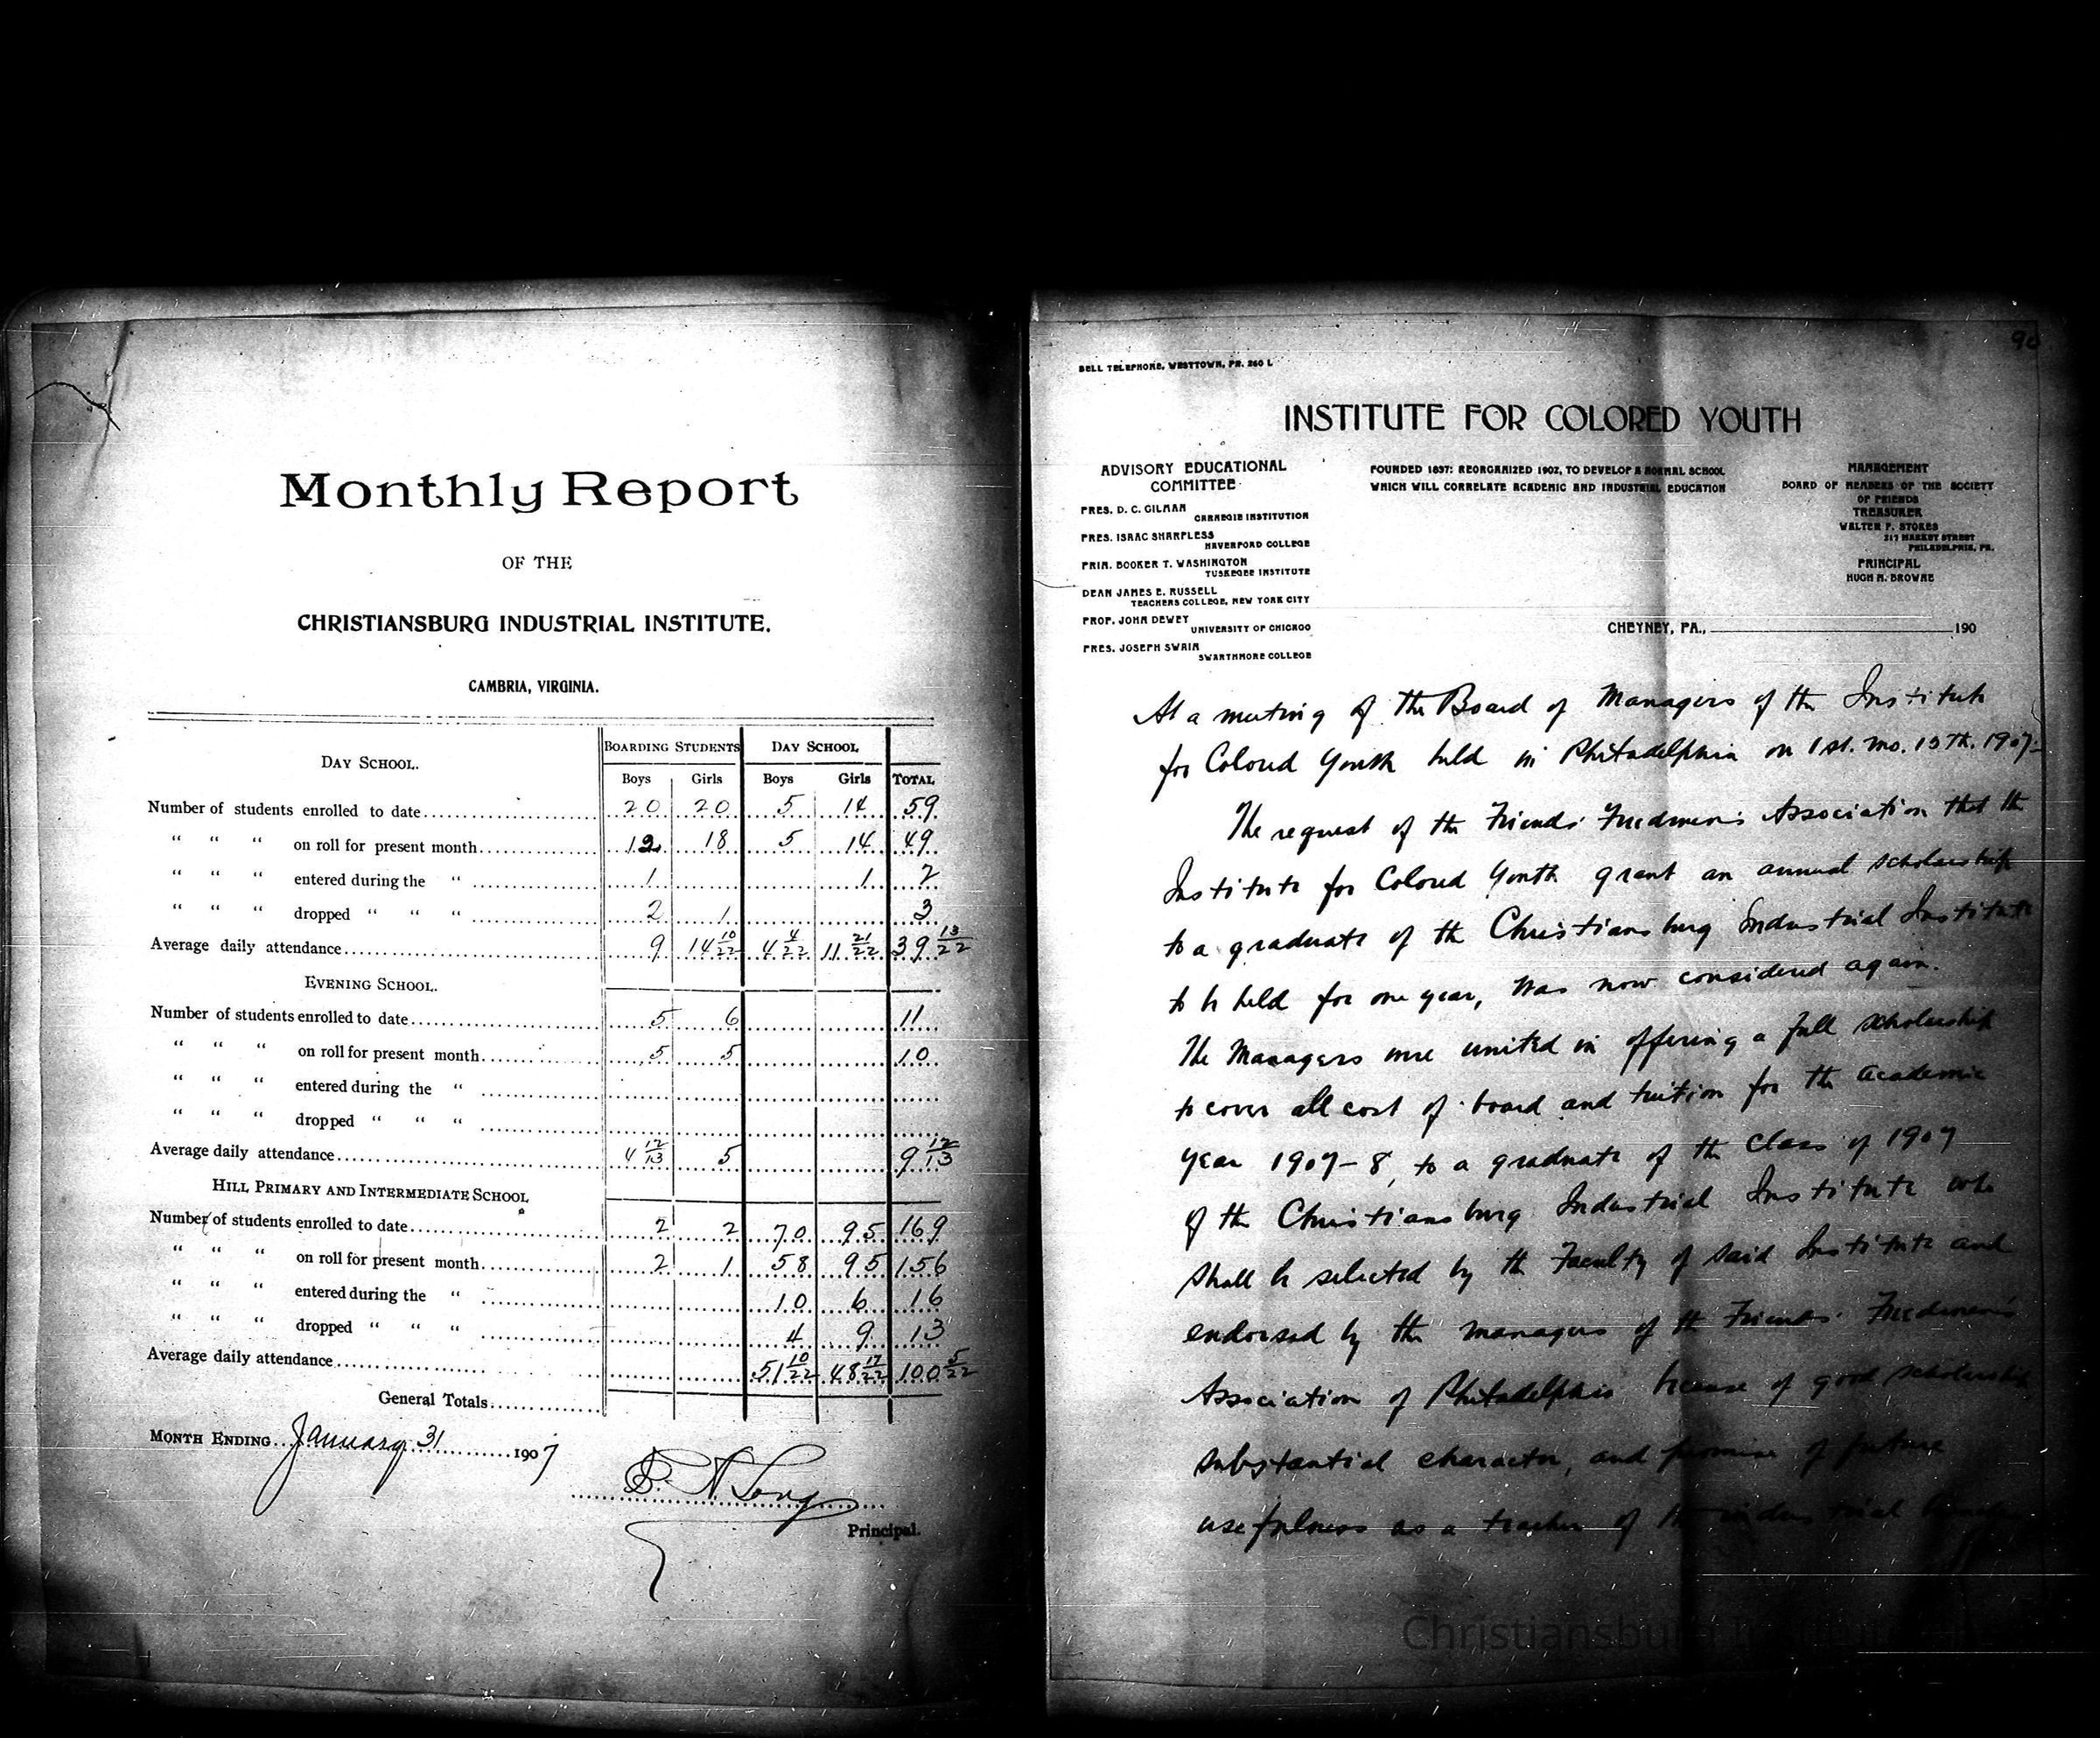 Monthly Report
OF THE
CHRISTIANSBURG INDUSTRIAL INSTITUTE.
CAMBRIA, VIRGINIA.
DAY SCHOOL. BOARDING STUDENTS DAY SCHOOL
Boys Girls Boys Girls TOTAL
Number of students enrolled to date 20 20 5 14 59
“ “ “ on roll for present month 12 18 5 14 49
“ “ “ entered during the “ 1 1 2
“ “ “ dropped “ “ “ 2 1 3
Average daily attendance 9 14 10/22 4 4/22 11 21/22 39 13/22
EVENING SCHOOL.
Number of students enrolled to date 5 6 11
“ “ “ on roll for present month 5 5 10
“ “ “ entered during the “
“ “ “ dropped “ “ “
Average daily attendance 4 12/13 5 9 12/13
HILL PRIMARY AND INTERMEDIATE SCHOOL
Number of students enrolled to date 2 2 70 95 169
“ “ “ on roll for present month 2 1 58 95 156
“ “ “ entered during the “ 10 6 16
“ “ “ dropped “ “ “ 4 9 13
Average daily attendance 51 10/22 48 17/22 100 5/22
General Totals
MONTH ENDING January 31 1907
Long
Principal.
90
BELL TELEPHONE, WESTTOWN, PA. 260 L
INSTITUTE FOR COLORED YOUTH
FOUNDED 1837: REORGANIZED 1902, TO DEVELOP A NORMAL SCHOOL
WHICH WILL CORRELATE ACADEMIC AND INDUSTRIAL EDUCATION
ADVISORY EDUCATIONAL
COMMITTEE
PRES. D. C. GILMAN
CARNEGIE INSTITUTION
PRES. ISAAC SHARPLESS
HAVERFORD COLLEGE
PRIN. BOOKER T. WASHINGTON
TUSKEGEE INSTITUTE
DEAN JAMES E. RUSSELL
TEACHERS COLLEGE, NEW YORK CITY
PROF. JOHN DEWEY
UNIVERSITY OF CHICAGO
PRES. JOSEPH SWAIN
SWARTHMORE COLLEGE
MANAGEMENT
BOARD OF MEMBERS OF THE SOCIETY
OF FRIENDS
TREASURER
WALTER P. STOKES
217 MARKET STREET
PHILADELPHIA, PA.
PRINCIPAL
HUGH M. BROWNE
CHEYNEY, PA., 190
At a meeting of the Board of Managers of the Institute
for Colored Youth held in Philadelphia on 1st. mo. 15th. 1907:-
The request of the Friends' Freedmen's Association that the
Institute for Colored Youth grant an annual scholarship
to a graduate of the Christiansburg Industrial Institute
to be held for one year, was now considered again.
The Managers were united in offering a full scholarship
to cover all cost of board and tuition for the academic
year 1907-8, to a graduate of the class of 1907
of the Christiansburg Industrial Institute who
shall be selected by the Faculty of said Institute and
endorsed by the managers of the Friends' Freedmen's
Association of Philadelphia because of good scholarship
substantial character, and promise of future
usefulness as a teacher of the industrial
Christiansburg Institute